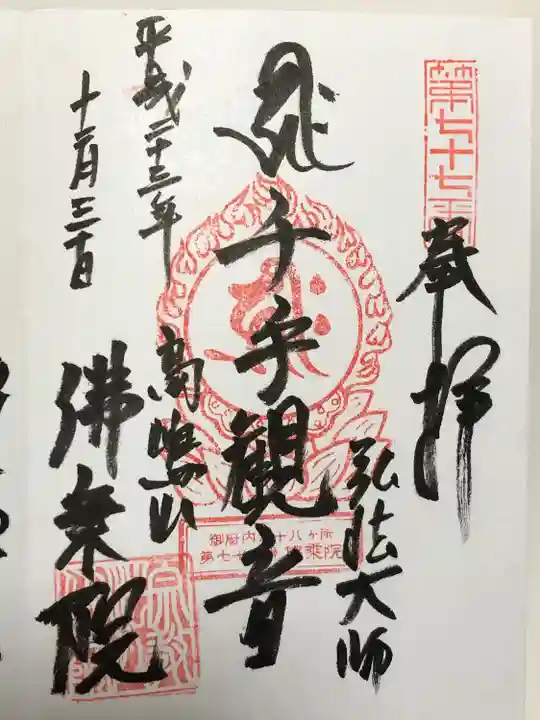 第七十七番
奉拝
弘法大師
千手観音
高嶋山
佛乗院
平成二十三年
十二月三十日
御府内八十八ヶ所
第七十七番 佛乗院